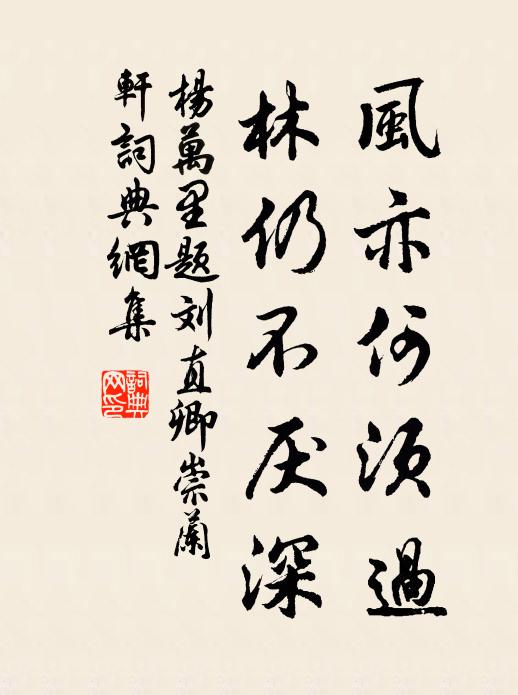 風亦何須過
林仍不厌深
楊萬里题刘直卿崇蘭
軒詞典網集
詞典
网印